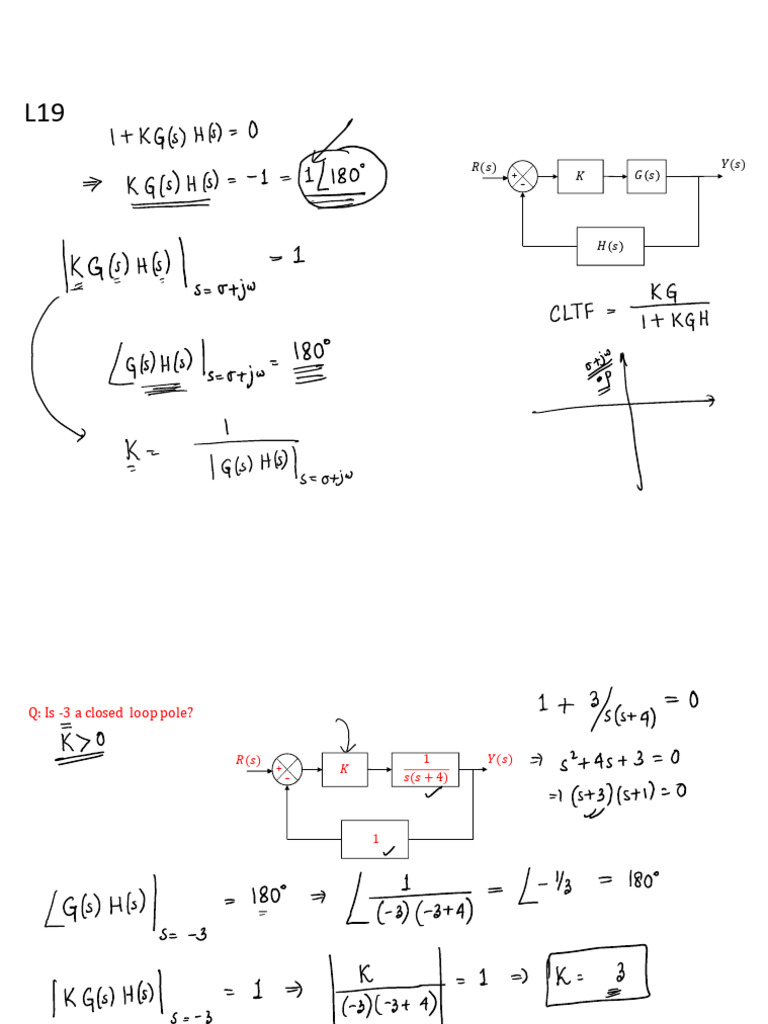 L19
1 + KG(s) H(s) = 0
⇒ KG(s) H(s) = -1 = 1∠180°
R(s) + - K G(s) Y(s)
H(s)
|KG(s) H(s)|s=σ+jω = 1
CLTF = KG / 1 + KGH
∠G(s) H(s)|s=σ+jω = 180°
σ+jω
P
K = 1 / |G(s) H(s)|s=σ+jω
Q: Is -3 a closed loop pole?
K > 0
1 + 3/s(s+4) = 0
⇒ s²+4s+3 = 0
⇒ (s+3)(s+1) = 0
R(s) + - K 1 / s(s + 4) Y(s)
1
∠G(s) H(s)|s=-3 = 180° ⇒ ∠ 1 / (-3)(-3+4) = ∠-1/3 = 180°
|KG(s) H(s)|s=-3 = 1 ⇒ |K / (-3)(-3+4)| = 1 ⇒ K = 3